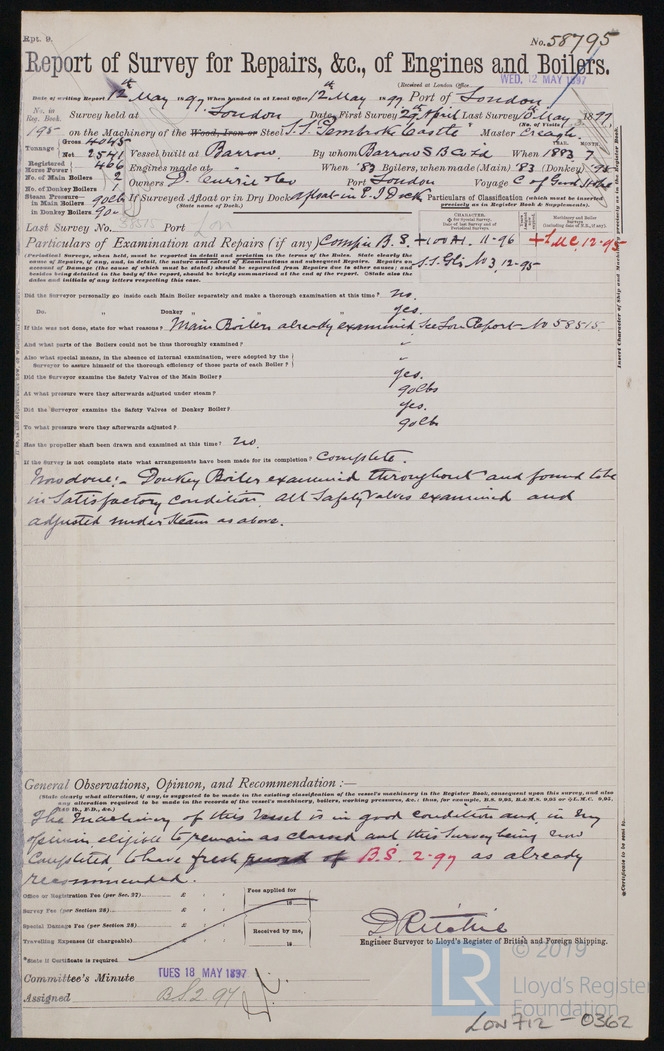 Rpt. 9.
No. 58795
Report of Survey for Repairs, &c., of Engines and Boilers.
(Received at London Office
WED. 12 MAY 1897
Date of writing Report 12th May 1897 When handed in at Local Office 12th May 1897 Port of London
No. in Reg. Book. Survey held at London Date, First Survey 29th April Last Survey 10th May 1897
(No. of Visits
195 on the Machinery of the Wood, Iron or Steel S.S. "Pembroke Castle" Master
Tonnage Gross 4045
Net 2541 Vessel built at Barrow By whom Barrow S B Co Ld When 1883 7
YEAR. MONTH.
Registered Horse Power 466 Engines made at When '83 Boilers, when made (Main) '83 (Donkey) '95
No. of Main Boilers 2
No. of Donkey Boilers 1 Owners D. Currie & Co Port London Voyage C of Good Hope
Steam Pressure in Main Boilers 90 lbs If Surveyed Afloat or in Dry Dock afloat in E. I Dock
(State name of Dock.)
in Donkey Boilers 90
Particulars of Classification (which must be inserted precisely as in Register Book & Supplements).
CHARACTER.
Last Survey No. 58515 Port
Particulars of Examination and Repairs (if any) Comp'n B. S. +100A1. 11-96 +LMC, 12-95
S.S. No 3, 12-95
(Periodical Surveys, when held, must be reported in detail and seriatim in the terms of the Rules. State clearly the
cause of Repairs, if any, and, in detail, the nature and extent of Examinations and subsequent Repairs. Repairs on
account of Damage (the cause of which must be stated) should be separated from Repairs due to other causes; and
besides being detailed in the body of the report, should be briefly summarised at the end of the report. State also the
dates and initials of any letters respecting this case.
Did the Surveyor personally go inside each Main Boiler separately and make a thorough examination at this time? No.
Do. " Donkey " " " yes.
If this was not done, state for what reasons? Main Boilers already examined see Lon Report No 58515
And what parts of the Boilers could not be thus thoroughly examined? "
Also what special means, in the absence of internal examination, were adopted by the
Surveyor to assure himself of the thorough efficiency of those parts of each Boiler? "
Did the Surveyor examine the Safety Valves of the Main Boiler? yes.
At what pressure were they afterwards adjusted under steam? 90 lbs
Did the Surveyor examine the Safety Valves of Donkey Boiler? yes.
To what pressure were they afterwards adjusted? 90 lbs
Has the propeller shaft been drawn and examined at this time? No.
If the Survey is not complete state what arrangements have been made for its completion? Complete.
Now done:- Donkey Boiler examined throughout and found to be
in satisfactory condition. All Safety Valves examined and
adjusted under steam as above.
General Observations, Opinion, and Recommendation:—
(State clearly what alteration, if any, is suggested to be made in the existing classification of the vessel's machinery in the Register Book, consequent upon this survey, and also
any alteration required to be made in the records of the vessel's machinery, boilers, working pressures, &c.: thus, for example, B.S. 9,95, B.&M.S. 9,95 or L.M.C. 9,95,
The Machinery of this Vessel is in good condition and in my
opinion eligible to remain as classed and this Survey being now
completed to have fresh record of B.S. 2.97 as already
recommended.
Office or Registration Fee (per Sec. 27) £ : : Fees applied for
18
Survey Fee (per Section 28) £ : :
Special Damage Fee (per Section 28) £ : : Received by me,
Travelling Expenses (if chargeable) £ : : 18
D. Ritchie
Engineer Surveyor to Lloyd's Register of British and Foreign Shipping.
*State if Certificate is required
Committee's Minute TUES 18 MAY 1897
Assigned B.S. 2.97
Insert Character of Ship and Machinery precisely as in the Register Book.
*Certificate to be sent to
© 2019
LR
Lloyd's Register
Foundation
LON 712 - 0362